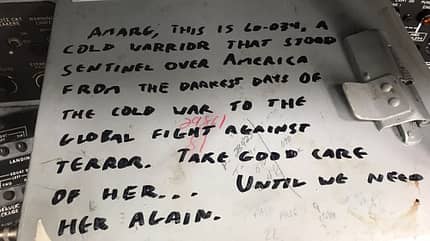 AMARG, THIS IS 60-034, A
COLD WARRIOR THAT STOOD
SENTINEL OVER AMERICA
FROM THE DARKEST DAYS OF
THE COLD WAR TO THE
GLOBAL FIGHT AGAINST
TERROR. TAKE GOOD CARE
OF HER... UNTIL WE NEED
HER AGAIN.
LANDIN